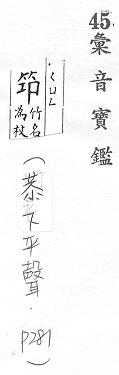 45.彙音寶鑑
筇 竹名為杖
(恭下平聲. P281)